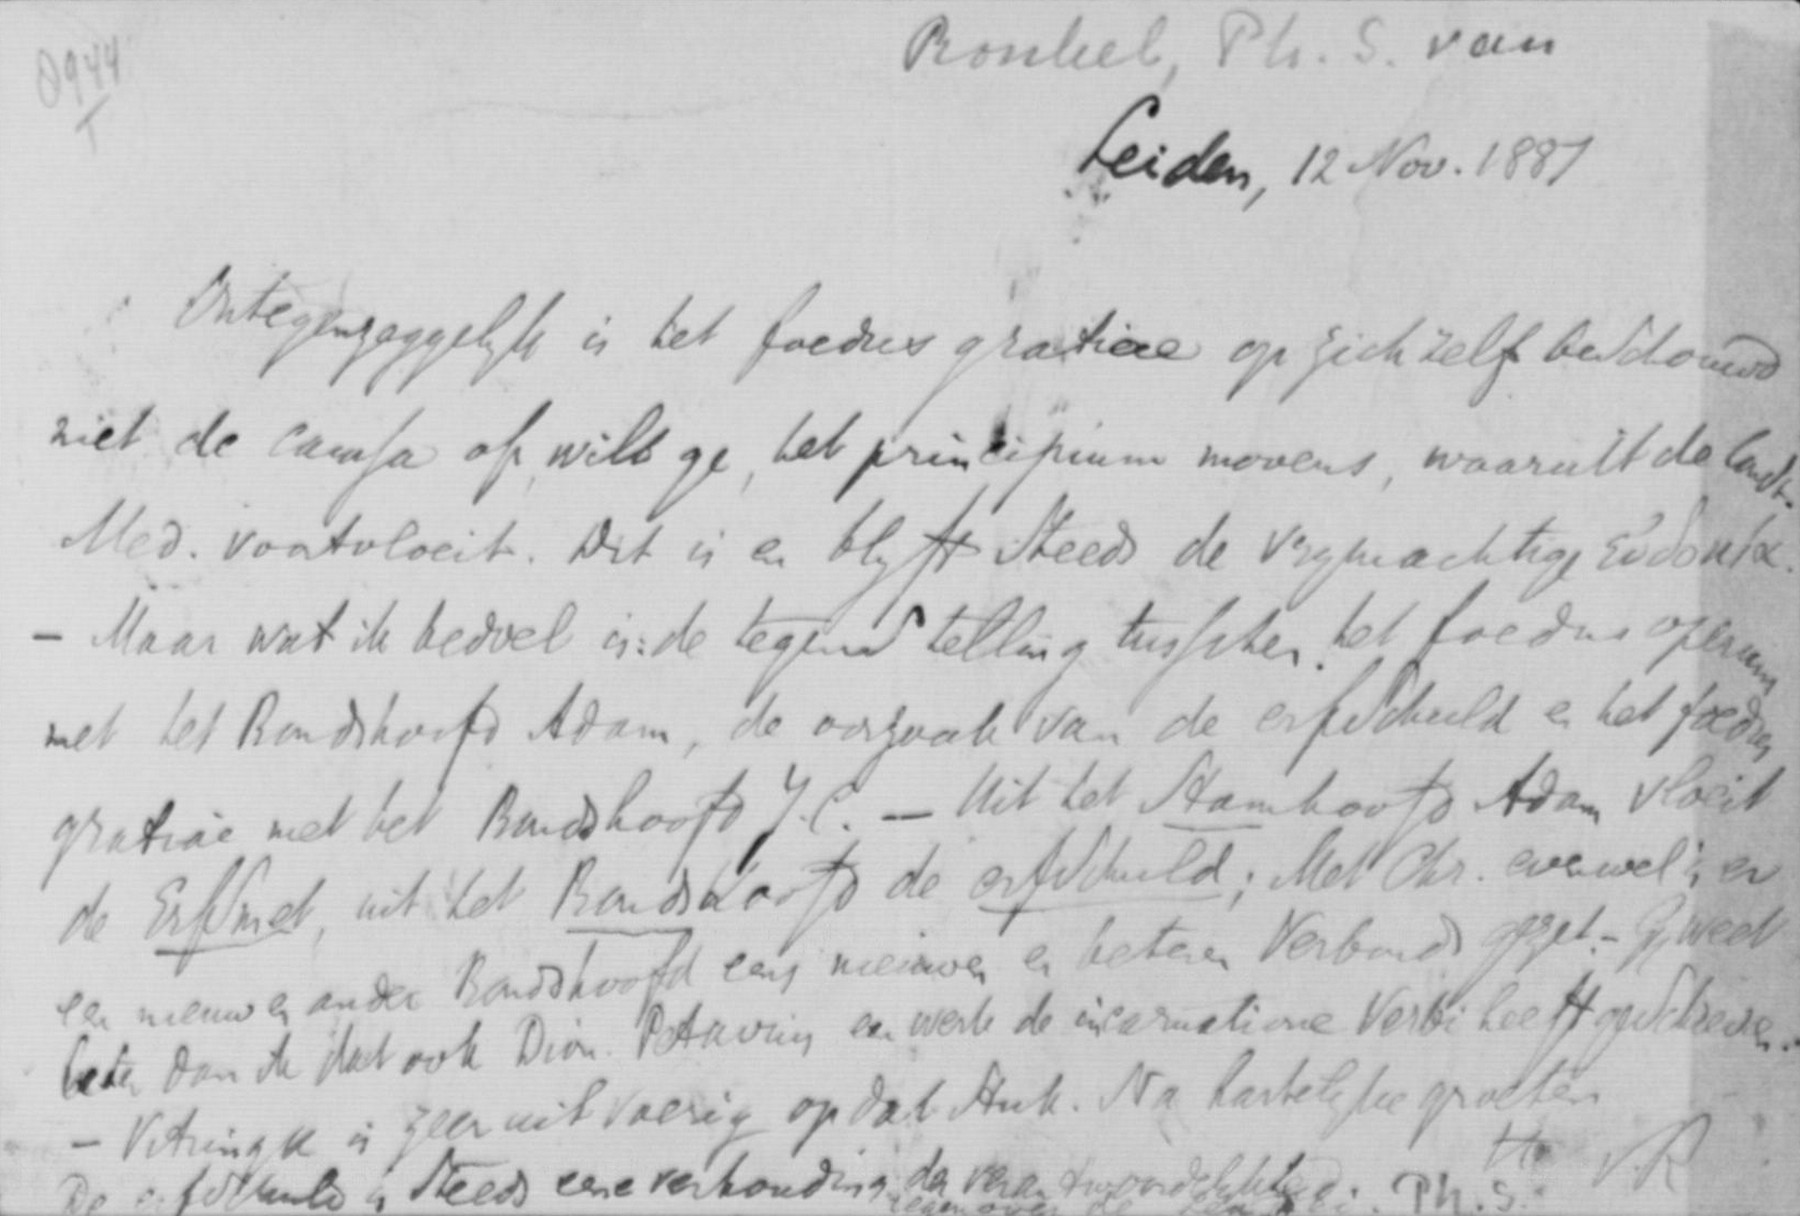 0944
T
Ronkel, Ph. S. van
Leiden, 12 Nov. 1887
Ontegenzeggelijk is het foedus gratiae op zich zelf beschouwd
niet de causa of, wilt ge, het principium movens, waaruit de
Med. voortvloeit. Dit is en blijft steeds de vrijmachtige εὐδοκία.
– Maar wat ik bedoel is: de tegenstelling tusschen het foedus operum
met het Bondshoofd Adam, de oorzaak van de erfschuld en het foedus
gratiae met het Bondshoofd J.C. – Uit het Stamhoofd Adam vloeit
de Erfsmet, uit het Bondshoofd de erfschuld; Met Chr. evenwel is er
een nieuw en ander Bondshoofd eens nieuwen en beteren Verbonds gezet. – Gij weet
beter dan ik dat ook Dion. Petavius een werk de incarnatione Verbi heeft geschreven.
– Vitringa is zeer uitvoerig op dat stuk. Na hartelijke groeten
v. R
De erfschuld is steeds eene verhouding der verantwoordelijkheid
tegenover de Ph. S.